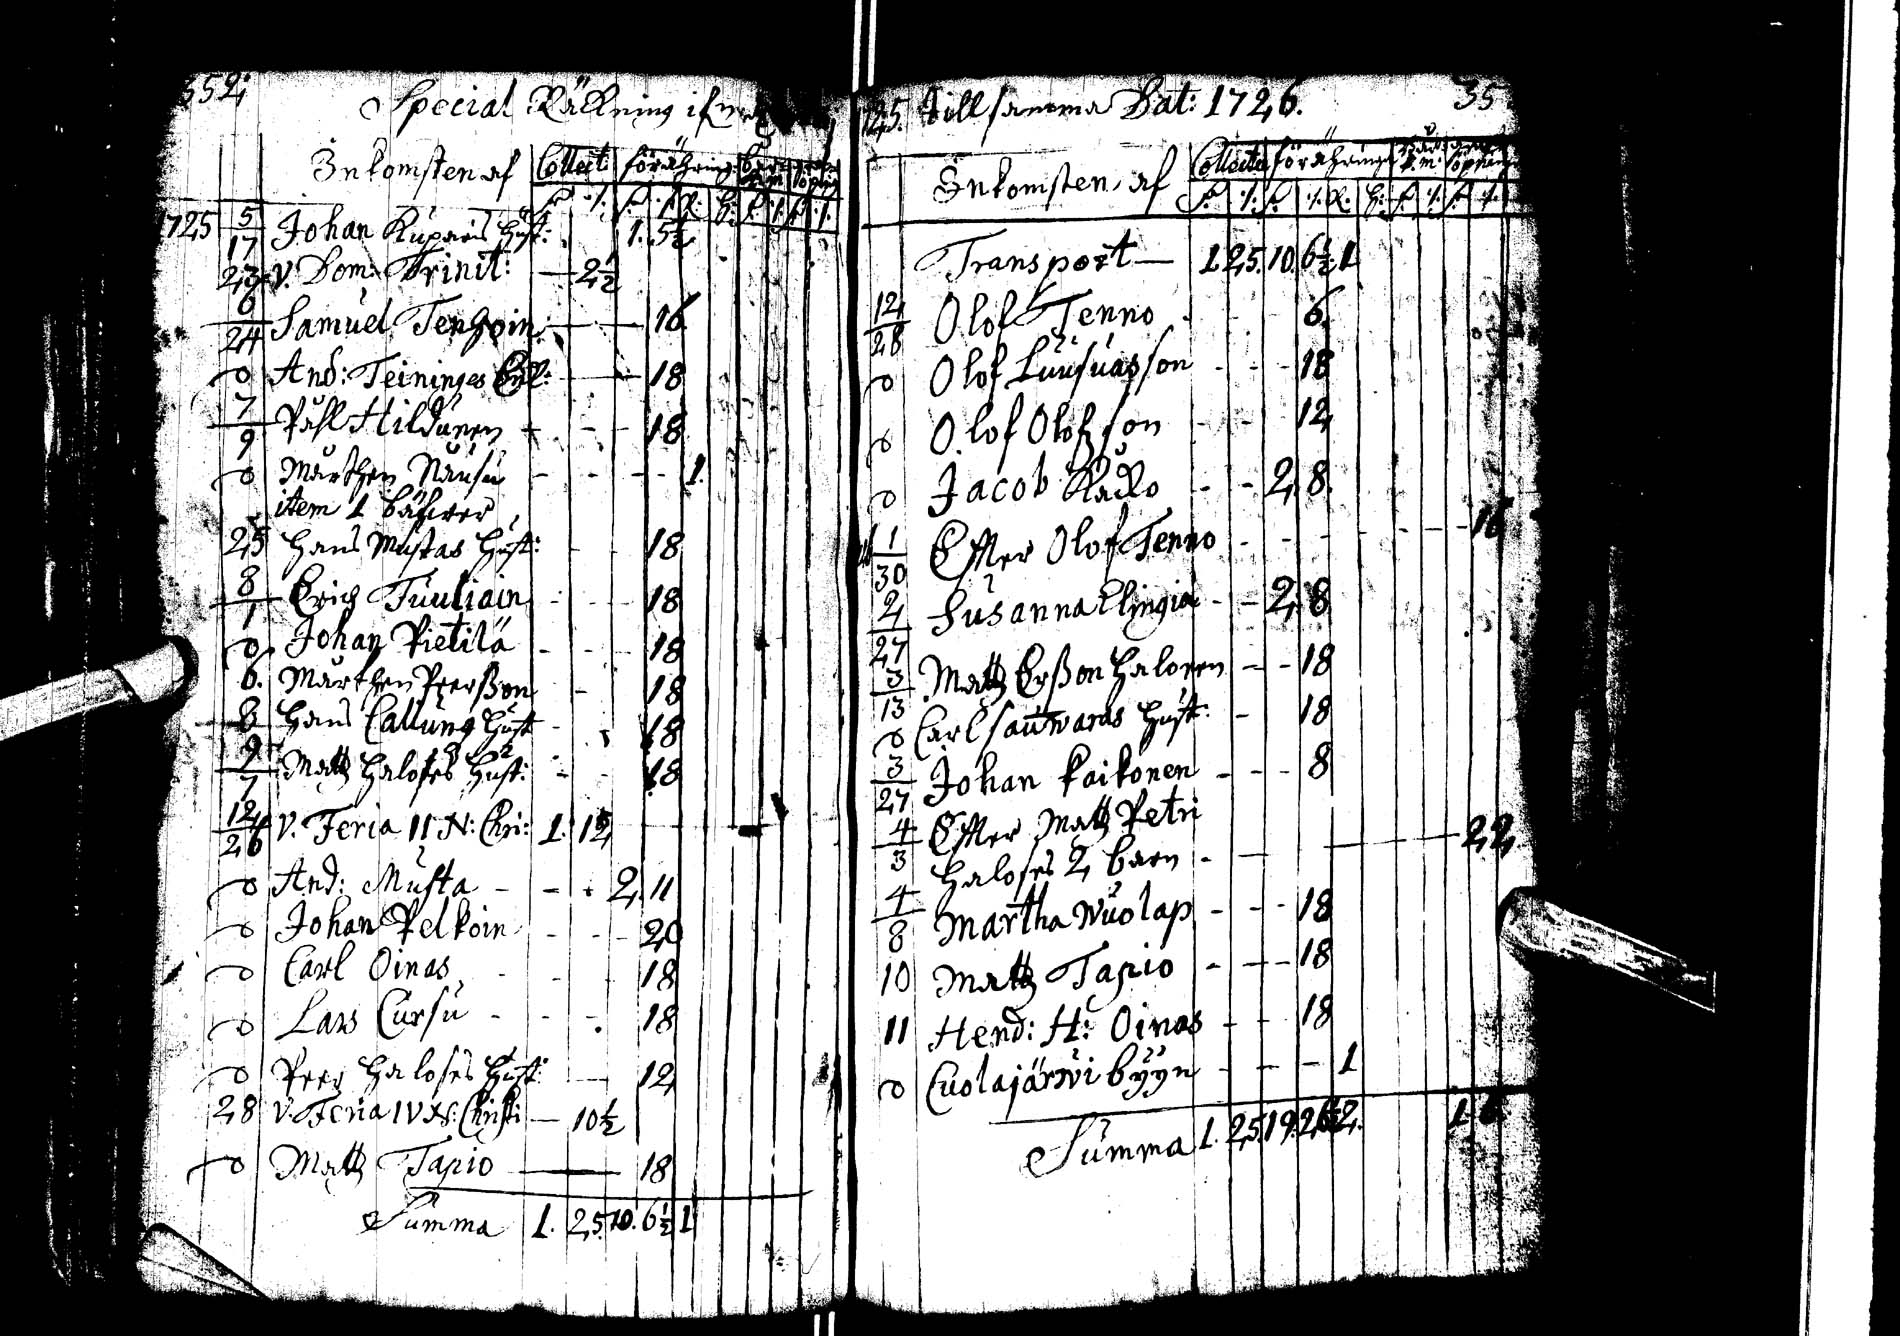 352.
Special Räkning ifrån
Inkomsten af Collect: förähring:
1725 5/17 Johan Kuparis Hust: 1. 5½
23 V. Dom: Trinit: — 2½
6/24 Samuel Tenhoin: — — 16
D And: Teininges Enk: — — 18
7/9 Påhl Hildunen - - - 18
D Mårthen Nausu - - - - 1.
item 1 bäfwer
25 Hans Mustas Hust: - - 18
8/1 Erich Tuuliain - - - 18
D Johan Pietilä - - - 18
6. Mårthen Peerßon - 18
8 Hans Callung Hust - - 18
9/7 Matts Haloses Hust: - - 18
12/26 V. Feria II N: Chri: 1. 12
D And: Musta - - - 2. 11
D Johan Pelkoin - - - 20
D Carl Oinas - - - 18
D Lars Cursu - - - 18
D Peer Haloses Hust: — 12
28 V. Feria IV N: Christi — 10½
D Matts Tapio — 18
Summa 1. 25. 10. 6½ 1
1725. till samma Dat: 1726. 35
Inkomsten af Collecter förähringar
Transport — 1. 25. 10. 6½. 1
12/28 Olof Tenno - - - 6.
D Olof Luusuasson - - - 18
D Olof Olofsson - - 12
D Jacob Räcko - - 2. 8.
1/30 Effter Olof Tenno - - - - - - 16
2/27 Susanna Elingia - - 2. 8
3/13 Matts Erßon Haloren - - 18
D Carl Sauwaras Hust: - 18
3/27 Johan Kaikonen - - - 8
4/3 Effter Matts Petri
Haloses 2 barn - — — 22
4/8 Martha Wuolap - - - 18
10 Matts Tapio - - - 18
11 Hend: H: Oinas - - - 18
D Cuolajärwi byyn - - - - 1
Summa 1. 25. 19. 26½ 2. 1. 6